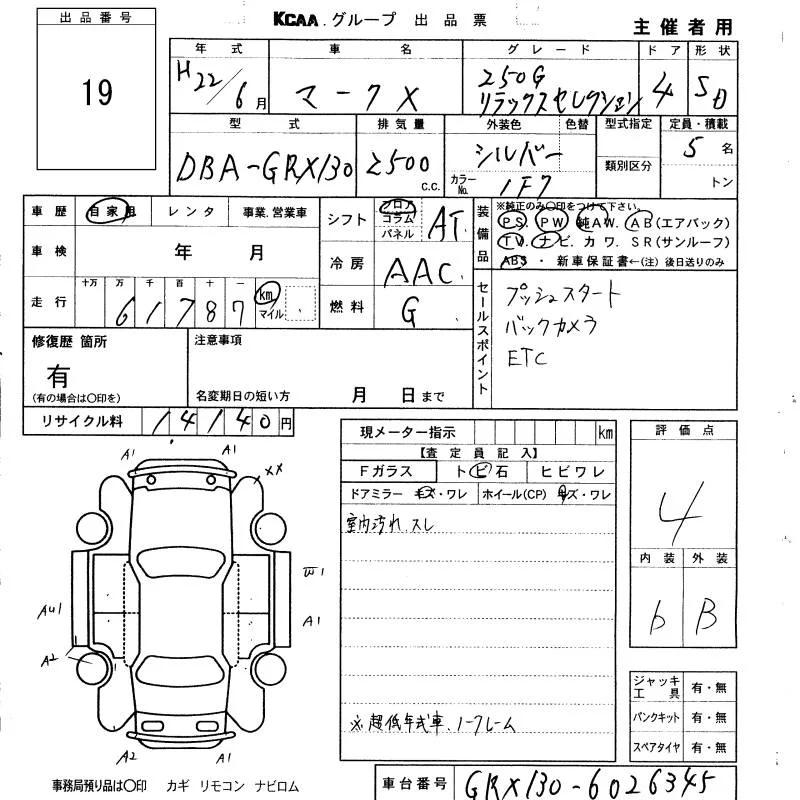 出品番号
19
KCAA グループ 出品票
主催者用
年式 車名 グレード ドア 形状
H22/6月 マークX 250G リラックスセレクション 4 SD
型式 排気量 外装色 色替 型式指定 定員・積載
DBA-GRX130 2500 c.c. シルバー 類別区分 5 名
カラーNo. 1F7 トン
車歴 自家用 レンタ 事業.営業車
シフト フロア コラム パネル AT
装備品 ※純正のみ〇印をつけて下さい。
PS. PW 純AW. AB(エアバック)
TV. ナビ. カワ. SR(サンルーフ)
ABS ・ 新車保証書←(注) 後日送りのみ
車検 年 月
冷房 AAC
走行 十万 万 千 百 十 一
61787 km マイル
燃料 G
セールスポイント
プッシュスタート
バックカメラ
ETC
修復歴 箇所
有
(有の場合は〇印を)
注意事項
名変期日の短い方 月 日まで
リサイクル料 14140 円
現メーター指示 km
【査定員記入】
Fガラス トビ石 ヒビワレ
ドアミラー キズ・ワレ ホイール(CP) キズ・ワレ
室内汚れ.スレ
※超低年式車.ノークレーム
評価点
4
内装 外装
b B
ジャッキ工具 有・無
パンクキット 有・無
スペアタイヤ 有・無
A1 A1
XX
W1
AU1 A1
A2
A2 A1
事務局預り品は〇印 カギ リモコン ナビロム
車台番号 GRX130-6026345